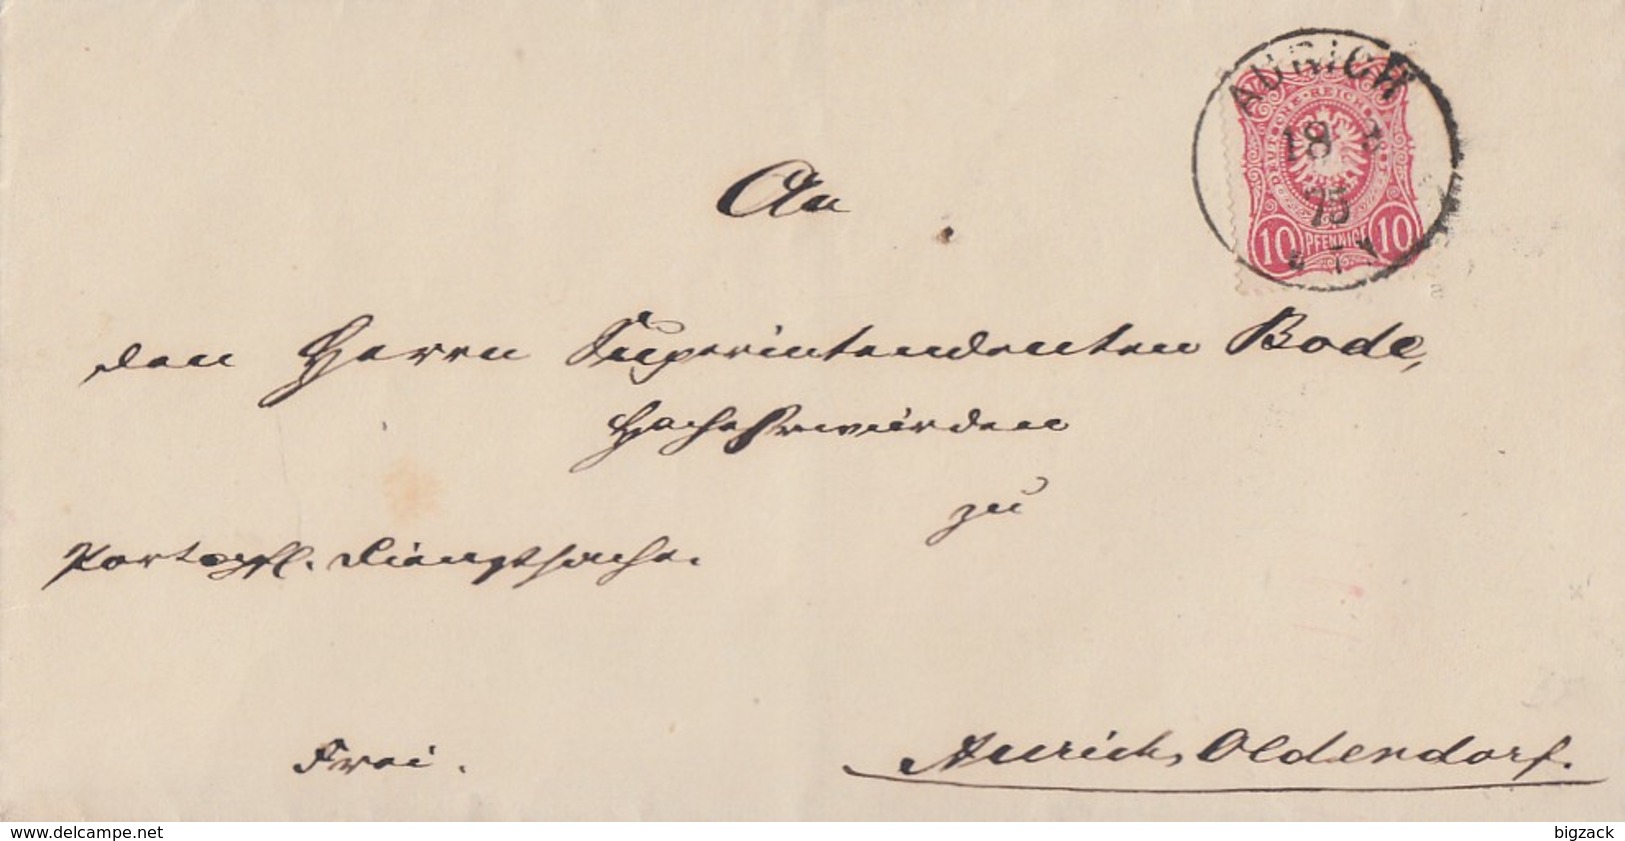 AURICH
18 3
75
DEUTSCHE REICHS-POST
10 PFENNIGE 10
An
den Herrn Superintendenten Bode,
Hochehrwürden
zu
Portopfl. Dienstsache.
Frei.
Aurich, Oldendorf.
www.delcampe.net
bigzack